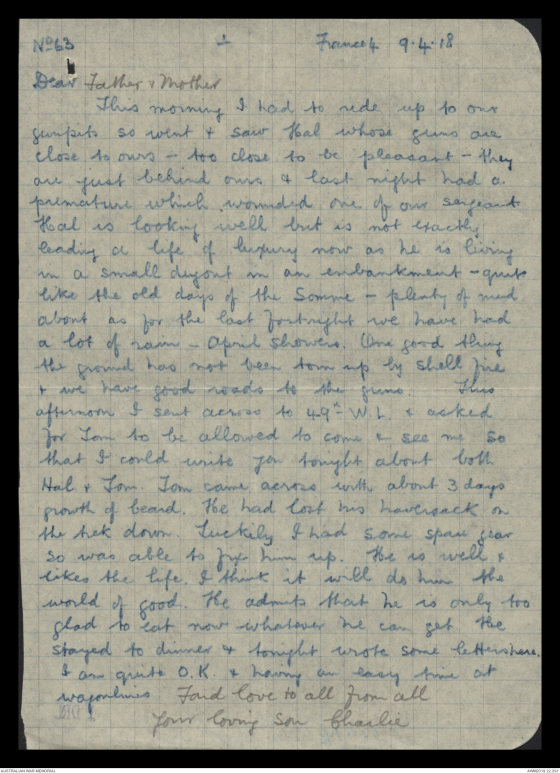 No 63
1
France 9.4.18
Dear Father & Mother
This morning I had to ride up to our
gunpits so went & saw Hal whose guns are
close to ours - too close to be pleasant - they
are just behind ours & last night had a
premature which wounded one of our sergeants
Hal is looking well but is not exactly
leading a life of luxury now as he is living
in a small dugout in an embankment - quite
like the old days of the Somme - plenty of mud
about as for the last fortnight we have had
a lot of rain - April showers. One good thing
the ground has not been torn up by shell fire
& we have good roads to the guns. This
afternoon I sent across to 49th W.L. & asked
for Tom to be allowed to come & see me so
that I could write you tonight about both
Hal & Tom. Tom came across with about 3 days
growth of beard. He had lost his haversack on
the trek down. Luckily I had some spare gear
so was able to fix him up. He is well &
likes the life. I think it will do him the
world of good. He admits that he is only too
glad to eat now whatever he can get. He
stayed to dinner & tonight wrote some letters here.
I am quite O.K. & having an easy time at
wagonlines Fond love to all from all
Your loving Son Charlie
AUSTRALIAN WAR MEMORIAL